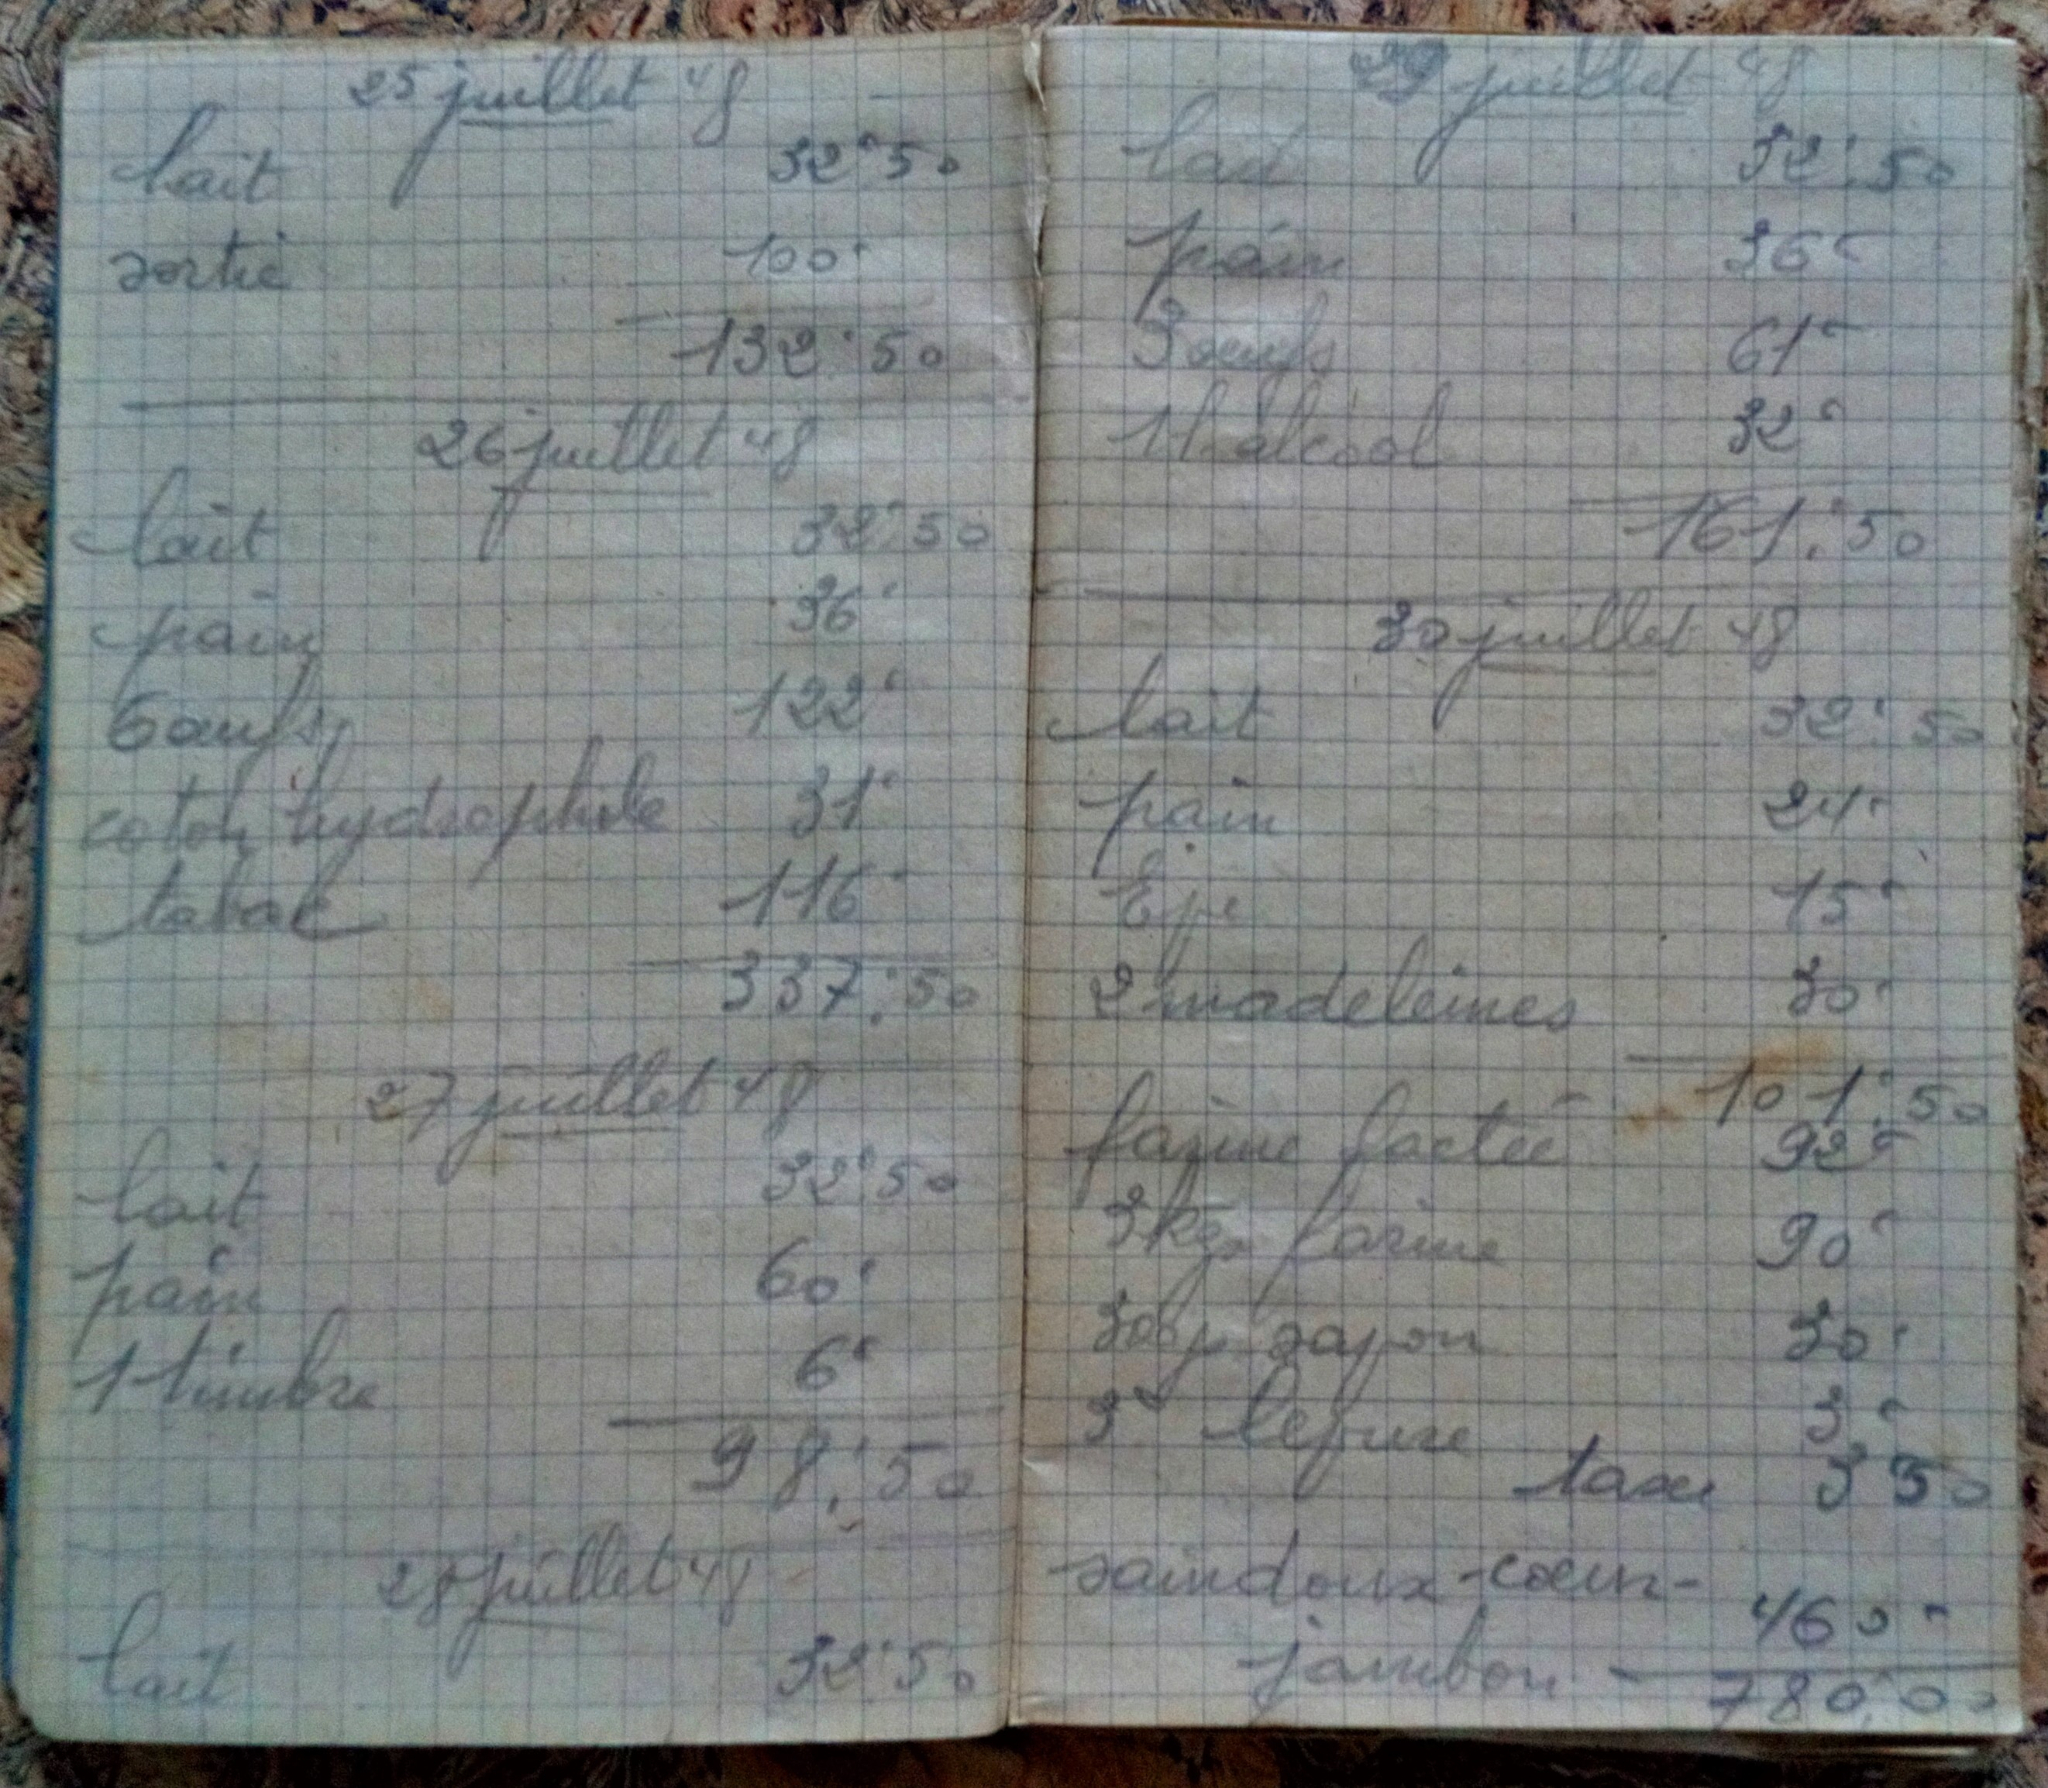 25 juillet 48
lait 32f50
sortie 100f
132f50
26 juillet 48
lait 32f50
pain 36f
6 œufs 122f
coton hydrophile 31f
tabac 116f
337f50
27 juillet 48
lait 32f50
pain 60f
1 timbre 6f
98f50
28 juillet 48
lait 32f50
29 juillet 48
lait 32f50
pain 36f
3 œufs 61f
1l alcool 32f
161f50
30 juillet 48
lait 32f50
pain 24f
15f
2 madeleines 30f
101f50
farine lactée 92f
3kgs farine 90f
savon 30f
3f
taxe 3 50
saindoux - cœur -
jambon - 460f
780f00